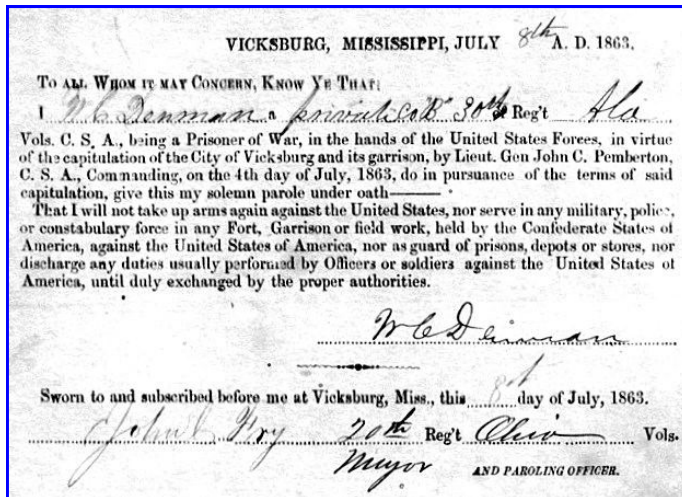 VICKSBURG, MISSISSIPPI, JULY 8th A. D. 1863.
TO ALL WHOM IT MAY CONCERN, KNOW YE THAT:
I W C Denman a private Co B 30th Reg't Ala
Vols. C. S. A., being a Prisoner of War, in the hands of the United States Forces, in virtue
of the capitulation of the City of Vicksburg and its garrison, by Lieut. Gen John C. Pemberton,
C. S. A., Commanding, on the 4th day of July, 1863, do in pursuance of the terms of said
capitulation, give this my solemn parole under oath——
That I will not take up arms again against the United States, nor serve in any military, police,
or constabulary force in any Fort, Garrison or field work, held by the Confederate States of
America, against the United States of America, nor as guard of prisons, depots or stores, nor
discharge any duties usually performed by Officers or soldiers against the United States of
America, until duly exchanged by the proper authorities.
W C Denman
Sworn to and subscribed before me at Vicksburg, Miss., this 8th day of July, 1863.
John C Fry 20th Reg't Ohio Vols.
Mayor AND PAROLING OFFICER.